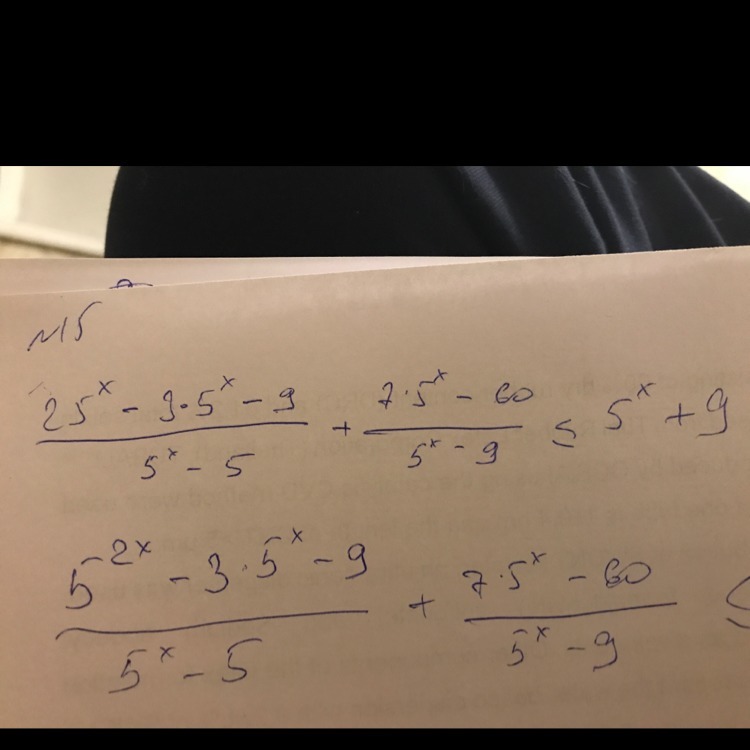 №15
\frac{25^x - 3 \cdot 5^x - 9}{5^x - 5} + \frac{7 \cdot 5^x - 60}{5^x - 9} \le 5^x + 9
\frac{5^{2x} - 3 \cdot 5^x - 9}{5^x - 5} + \frac{7 \cdot 5^x - 60}{5^x - 9} \le